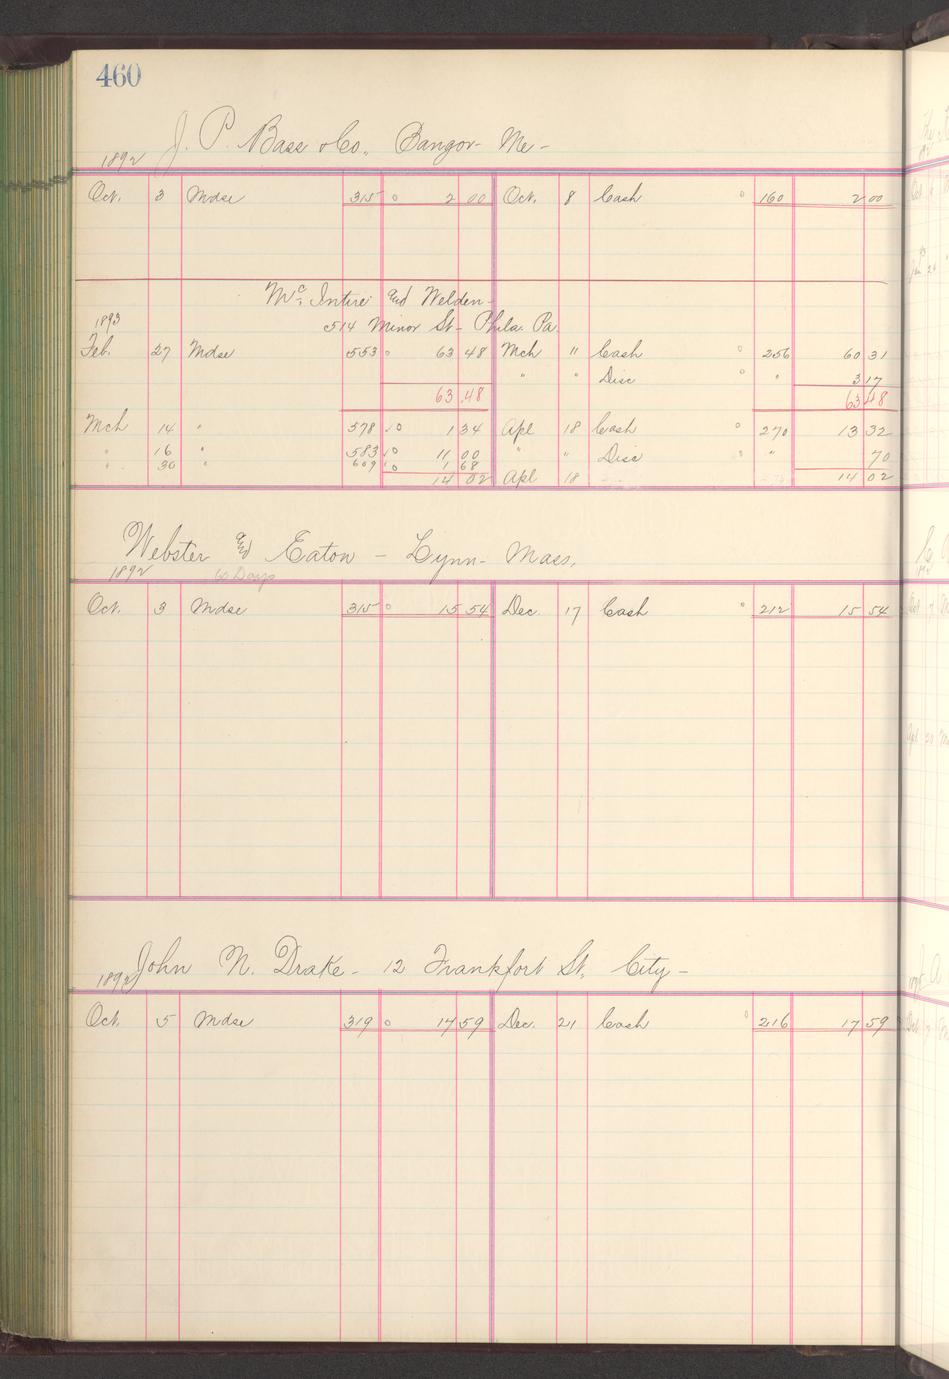 460
J. P. Bass & Co., Bangor - Me -
1892
Oct. 3 Mdse 315 2 00 Oct. 8 Cash 160 2 00
Mc Intire and Welden -
1893 514 Minor St - Phila. Pa.
Feb. 27 Mdse 553 63 48 Mch 11 Cash 256 60 31
" " Disc " 3 17
63.48 63 48
Mch 14 " 578 1 34 Apl 18 Cash 270 13 32
" 16 " 583 11 00 " " Disc " 70
" 30 " 609 1 68
14 02 Apl 18 14 02
Webster and Eaton - Lynn - Mass.
1892 60 Days
Oct. 3 Mdse 315 15 54 Dec. 17 Cash 212 15 54
John N. Drake - 12 Frankfort St. City -
1892
Oct. 5 Mdse 319 17 59 Dec. 21 Cash 216 17 59